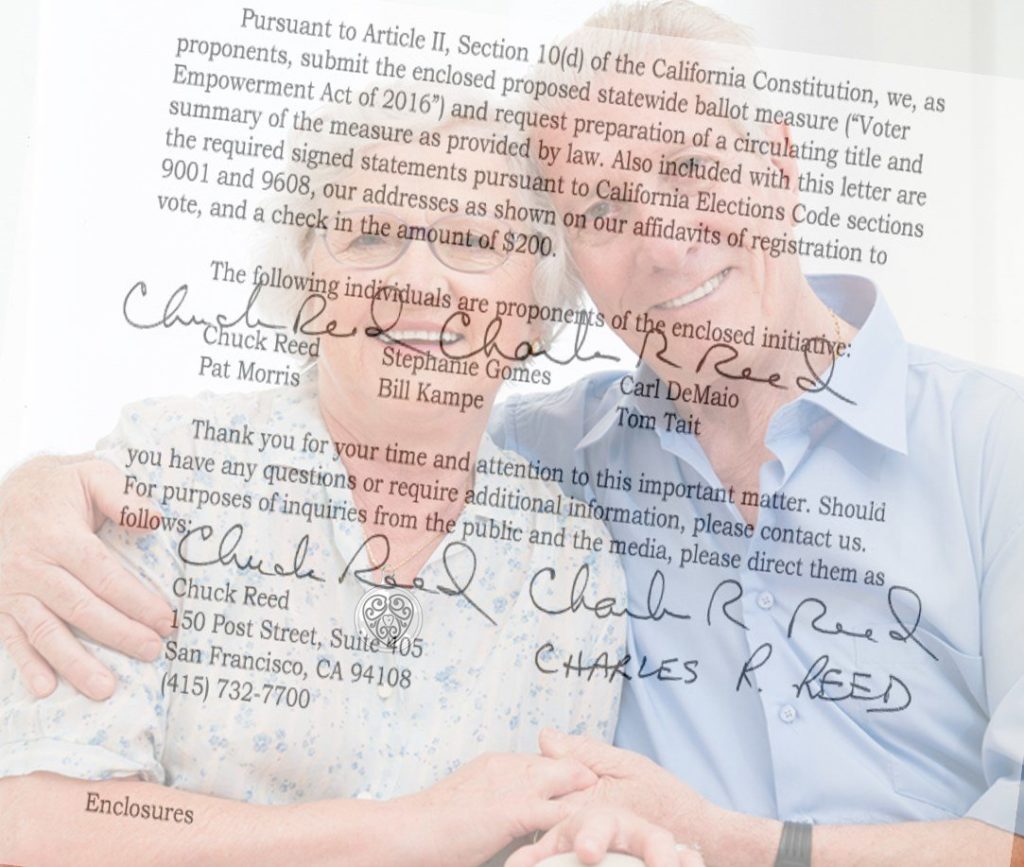 Pursuant to Article II, Section 10(d) of the California Constitution, we, as
proponents, submit the enclosed proposed statewide ballot measure (“Voter
Empowerment Act of 2016”) and request preparation of a circulating title and
summary of the measure as provided by law. Also included with this letter are
the required signed statements pursuant to California Elections Code sections
9001 and 9608, our addresses as shown on our affidavits of registration to
vote, and a check in the amount of $200.
The following individuals are proponents of the enclosed initiative:
Chuck Reed Charles R Reed
Chuck Reed Stephanie Gomes Carl DeMaio
Pat Morris Bill Kampe Tom Tait
Thank you for your time and attention to this important matter. Should
you have any questions or require additional information, please contact us.
For purposes of inquiries from the public and the media, please direct them as
follows:
Chuck Reed Charles R Reed
Chuck Reed
150 Post Street, Suite 405
San Francisco, CA 94108
(415) 732-7700
CHARLES R. REED
Enclosures